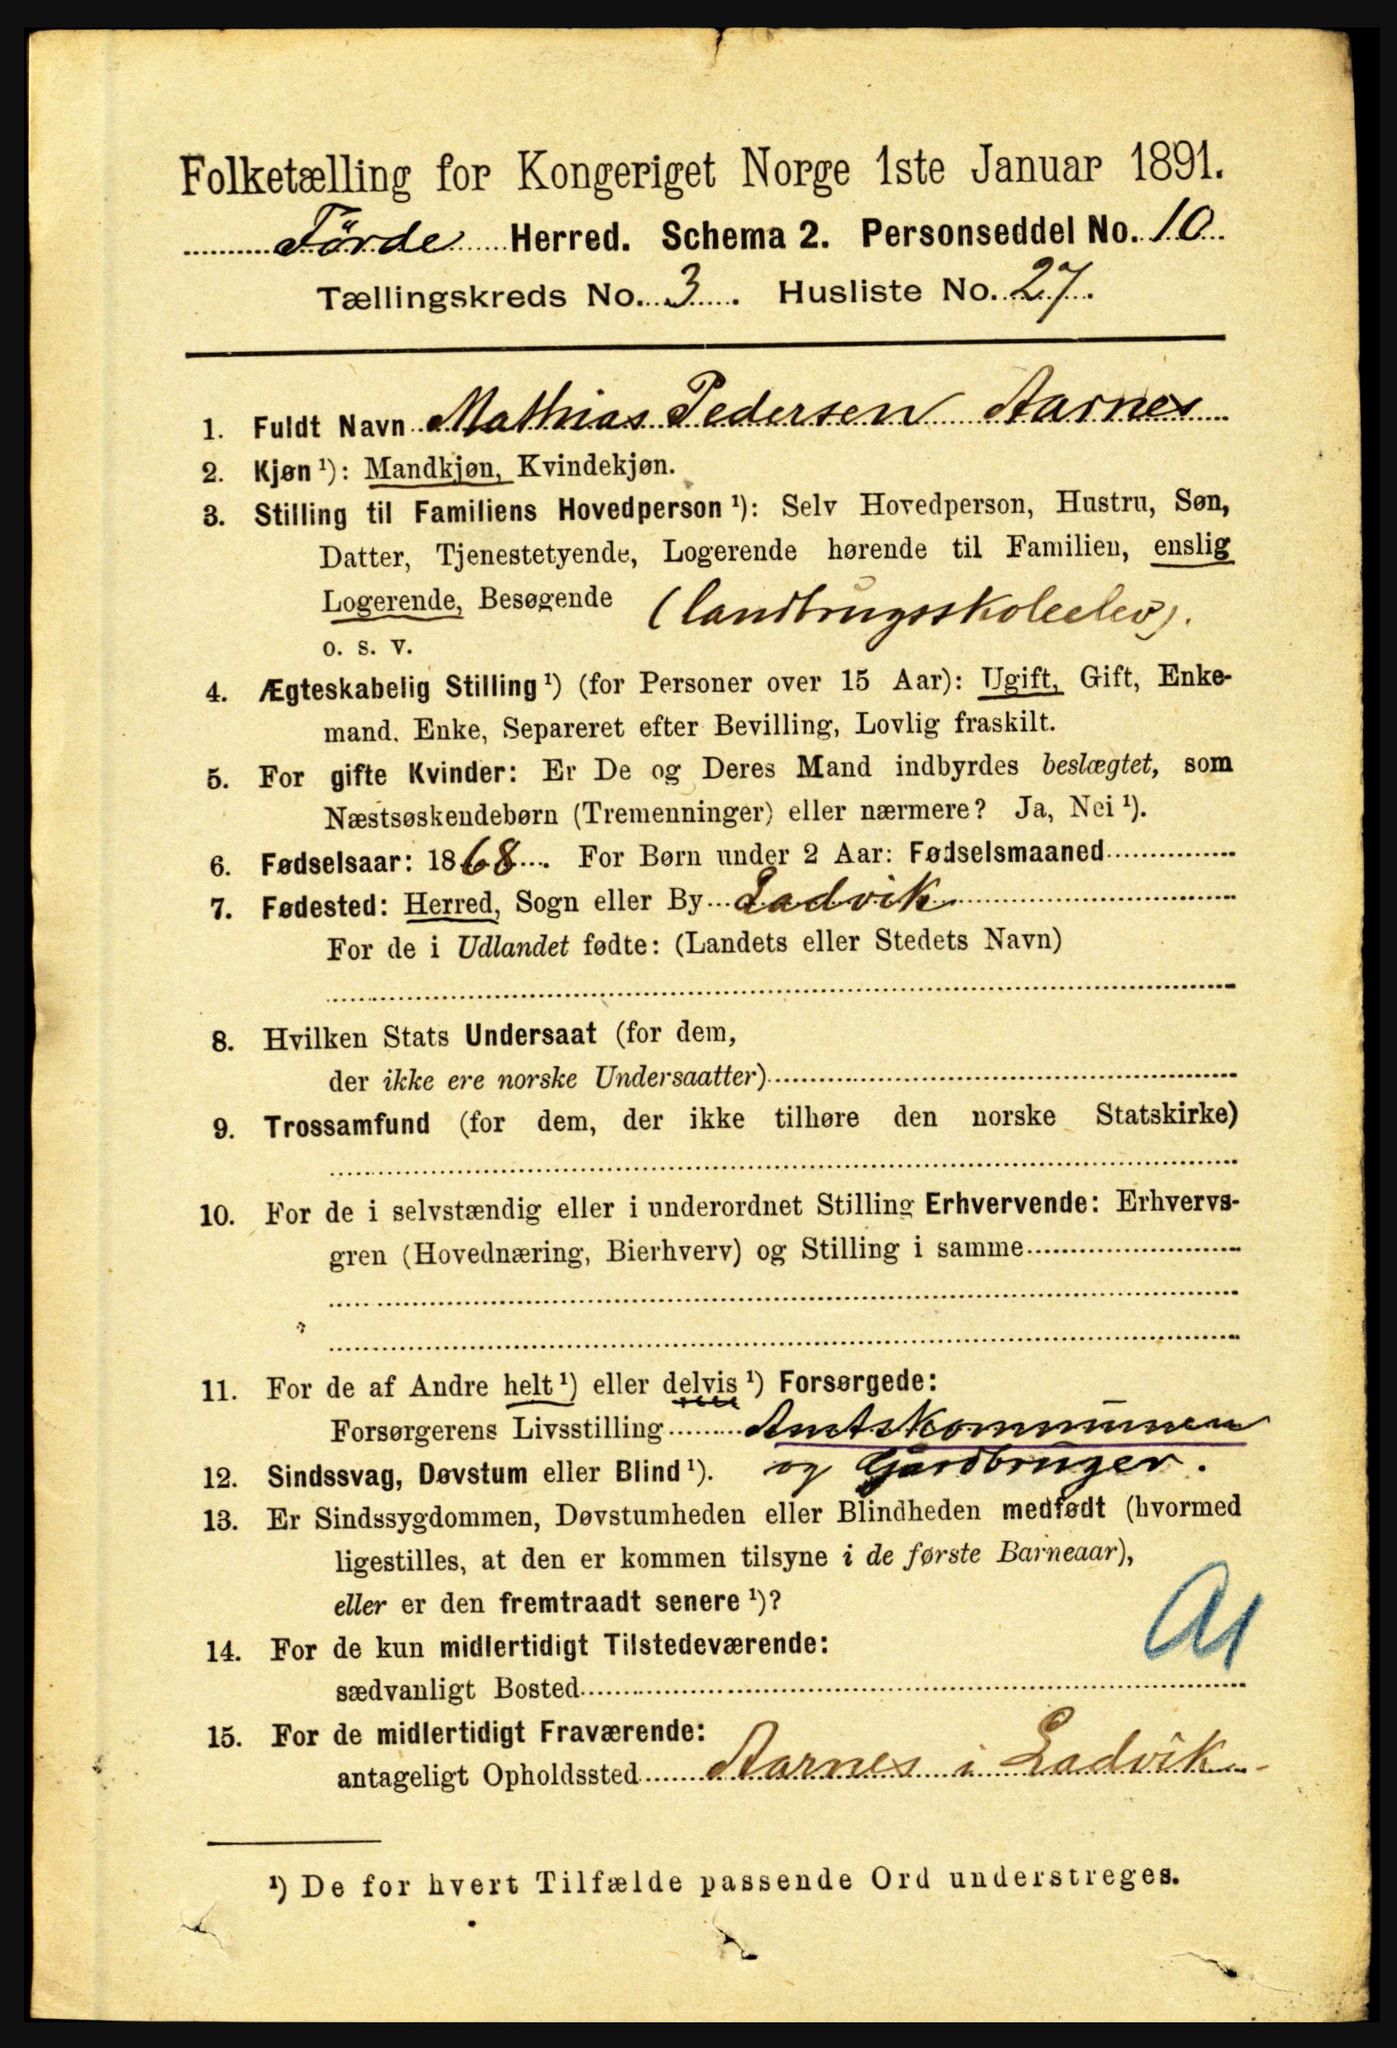 Folketælling for Kongeriget Norge 1ste Januar 1891.
Førde Herred. Schema 2. Personseddel No. 10
Tællingskreds No. 3. Husliste No. 27.
1. Fuldt Navn Mathias Pedersen Aarnes
2. Kjøn ¹): Mandkjøn, Kvindekjøn.
3. Stilling til Familiens Hovedperson ¹): Selv Hovedperson, Hustru, Søn,
Datter, Tjenestetyende, Logerende hørende til Familien, enslig
Logerende, Besøgende (landbrugsskoleelev).
o. s. v.
4. Ægteskabelig Stilling ¹) (for Personer over 15 Aar): Ugift, Gift, Enke-
mand. Enke, Separeret efter Bevilling, Lovlig fraskilt.
5. For gifte Kvinder: Er De og Deres Mand indbyrdes beslægtet, som
Næstsøskendebørn (Tremenninger) eller nærmere? Ja, Nei ¹).
6. Fødselsaar: 1868. For Børn under 2 Aar: Fødselsmaaned
7. Fødested: Herred, Sogn eller By Ladvik
For de i Udlandet fødte: (Landets eller Stedets Navn)
8. Hvilken Stats Undersaat (for dem,
der ikke ere norske Undersaatter)
9. Trossamfund (for dem, der ikke tilhøre den norske Statskirke)
10. For de i selvstændig eller i underordnet Stilling Erhvervende: Erhvervs-
gren (Hovednæring, Bierhverv) og Stilling i samme
11. For de af Andre helt ¹) eller delvis ¹) Forsørgede:
Forsørgerens Livsstilling Amtskommunen
12. Sindssvag, Døvstum eller Blind ¹). og Gårdbruger.
13. Er Sindssygdommen, Døvstumheden eller Blindheden medfødt (hvormed
ligestilles, at den er kommen tilsyne i de første Barneaar),
eller er den fremtraadt senere ¹)?
14. For de kun midlertidigt Tilstedeværende:
sædvanligt Bosted
15. For de midlertidigt Fraværende:
antageligt Opholdssted Aarnes i Ladvik
¹) De for hvert Tilfælde passende Ord understreges.